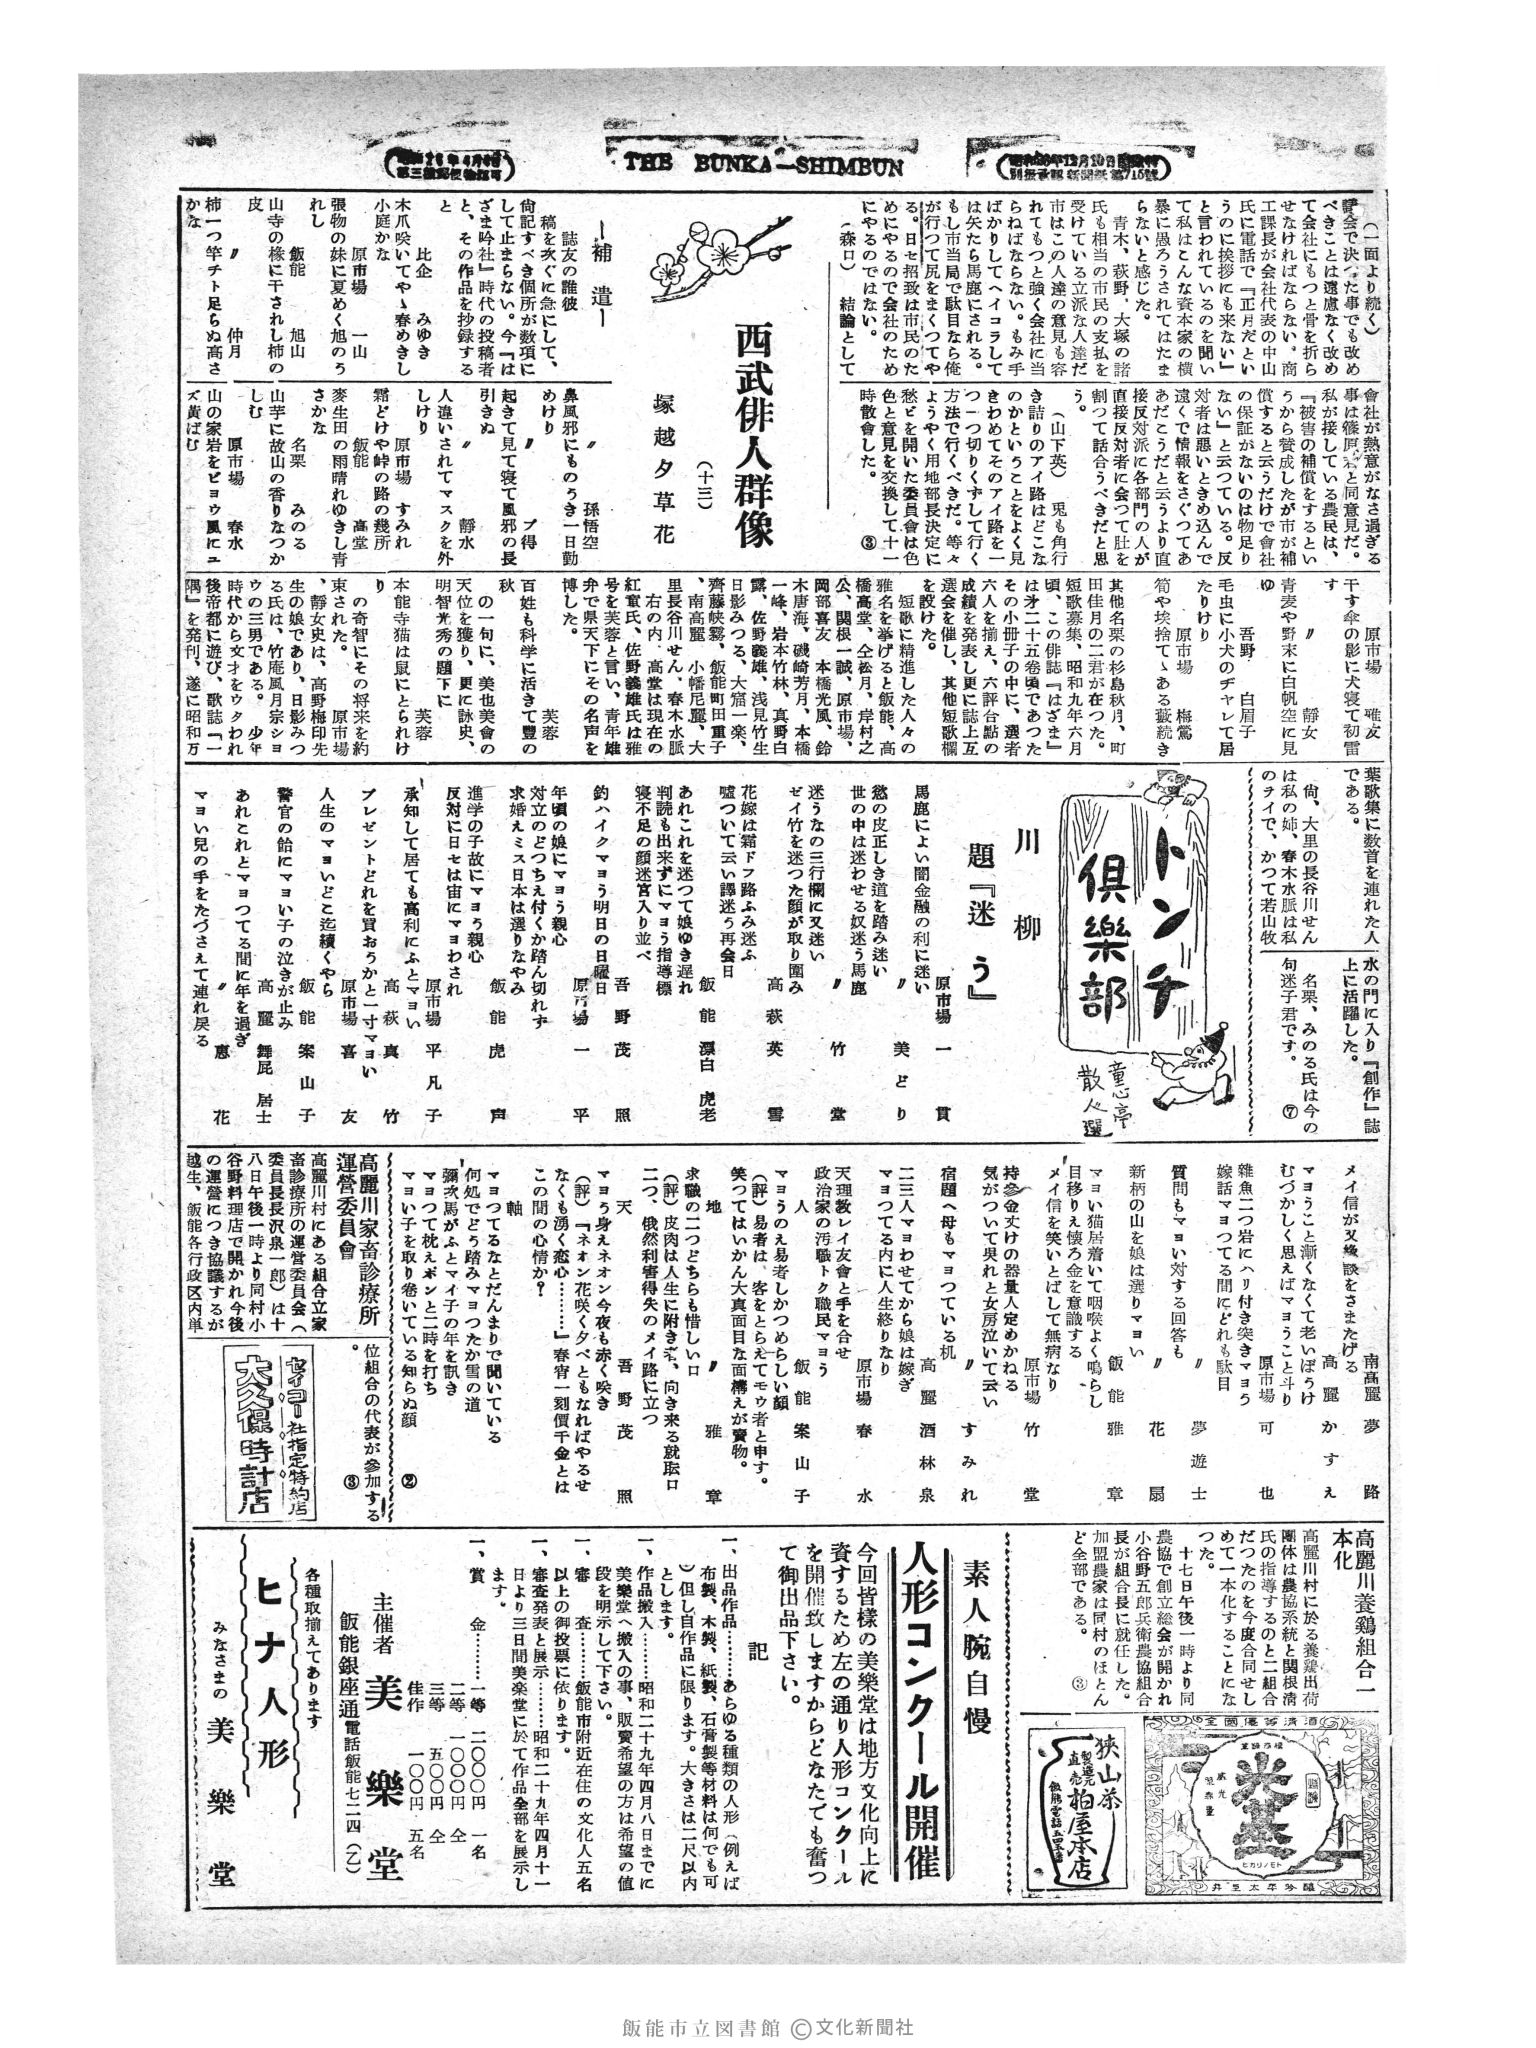 THE BUNKA—SHIMBUN
(一面より続く)
討会で決つた事でも改め
べきことは遠慮なく改め
て会社にもつと骨を折ら
せなければならない。商
工課長が会社代表の中山
氏に電話で『正月だとい
うのに挨拶にも来ない』
と言われているのを聞い
て私はこんな資本家の横
暴に愚ろうされてはたま
らないと感じた。
青木、萩野、大塚の諸
氏も相当の市民の支払を
受けている立派な人達だ
市はこの人達の意見も容
れてもつと強く会社に当
らねばならない。もみ手
ばかりしてヘイコラして
は矢たら馬鹿にされる。
もし市当局で駄目なら俺
が行つて尻をまくつてや
る。日セ招致は市民のた
めにやるので会社のため
にやるのではない。
(森口) 結論として
會社が熱意がなさ過ぎる
事は篠原君と同意見だ。
私が接している農民は、
『被害の補償をするとい
うから賛成したが市が補
償すると云うだけで會社
の保証がないのは物足り
ない』と云つている。反
対者は悪いときめ込んで
遠くで情報をさぐつてあ
あだこうだと云うより直
接反対派に各部門の人が
直接反対者に会つて肚を
割つて話合うべきだと思
う。
(山下英) 兎も角行
き詰りのアイ路はどこな
のかということをよく見
きわめてそのアイ路を一
つ一つ切りくずして行く
方法で行くべきだ。等々
ようやく用地部長決定に
愁ビを開いた委員會は色
色と意見を交換して十一
時散會した。 ③
西武俳人群像
(十三)
塚越夕草花
―補遺―
誌友の誰彼
稿を次ぐに急にして、
尙記すべき個所が数項に
して止まらない。今『は
ざま吟社』時代の投稿者
と、その作品を抄録する
と
比企 みゆき
木爪咲いてやゝ春めきし
小庭かな
原市場 一山
張物の妹に夏めく旭のう
れし
飯能 旭山
山寺の椽に干されし柿の
皮
〃 仲月
柿一つ竿チト足らぬ高さ
かな
〃 孫悟空
鼻風邪にものうき一日勤
めけり
〃 プ得
起きて見て寝て風邪の長
引きぬ
〃 靜水
人違いされてマスクを外
しけり
原市場 すみれ
霜どけや峠の路の幾所
飯能 高堂
麥生田の雨晴れゆきし青
さかな
名栗 みのる
山芋に故山の香りなつか
しむ
原市場 春水
山の家岩をビヨウ風にユ
ズ黄ばむ
原市場 雅友
干す傘の影に犬寝て初雷
す
〃 靜女
青麦や野末に白帆空に見
ゆ
吾野 白眉子
毛虫に小犬のヂャレて居
たりけり
原市場 梅鶯
筍や埃捨てゝある藪続き
其他名栗の杉島秋月、町
田佳月の二君が在つた。
短歌募集、昭和九年六月
頃、この俳誌『はざま』
は才二十五卷頃であつた
その小冊子の中に、選者
六人を揃え、六評台點の
成績を発表し更に誌上互
選会を催し、其他短歌欄
を設けた。
短歌に精進した人々の
雅名を挙げると飯能、高
橋高堂、仝松月、岸村之
公、関根一誠、原市場、
岡部喜友、本橋光風、鈴
木唐海、磯崎芳月、本橋
一峰、岩本竹林、真野白
露、佐野義雄、浅見竹生
日影みつる、大窟一楽、
齊藤峽霧、飯能町田重子
、南高麗、小幡尼麗、大
里長谷川せん、春木水脈
右の内、高堂は現在の
紅童氏、佐野義雄氏は雅
号を芙蓉と言い、青年雄
弁で県天下にその名声を
博した。
芙蓉
百姓も科学に活きて豊の
秋
の一句に、美也美會の
天位を獲り、更に詠史、
明智光秀の題下に
芙蓉
本能寺猫は鼠にとられけ
り
の奇智にその将来を約
束された。 原市場
、靜女史は、高野梅印先
生の娘であり、日影みつ
る氏は、竹庵風月宗シヨ
ウの三男である。 少年
時代から文才をウタわれ
後帝都に遊び、歌誌『一
隅』を発刊、遂に昭和万
葉歌集に数首を連れた人
である。
尙、大里の長谷川せん
は私の姉、春木水脈は私
のヲイで、かつて若山牧
水の門に入り『創作』誌
上に活躍した。
名栗、みのる氏は今の
旬迷子君です。 ⑦
トンチ倶樂部
童心亭
散人選
川柳
題『迷う』
原市場 一貫
馬鹿によい闇金融の利に迷い
〃 美どり
慾の皮正しき道を踏み迷い
世の中は迷わせる奴迷う馬鹿
〃 竹堂
迷うなの三行欄に又迷い
ゼイ竹を迷つた顔が取り囲み
高萩 英雪
花嫁は霜ドフ路ふみ迷ふ
嘘ついて云い譯迷う再会日
飯能 漂白虎老
あれこれを迷つて娘ゆき遅れ
判読も出来ずにマヨう指導標
寝不足の顔迷宮入り並べ
吾野 茂照
釣ハイクマヨう明日の日曜日
原市場 一平
年頃の娘にマヨう親心
対立のどつちえ付くか踏ん切れず
求婚えミス日本は選りなやみ
飯能 虎声
進学の子故にマヨう親心
反対に日セは宙にマヨわされ
原市場 平凡子
承知して居ても高利にふとマヨい
高萩 真竹
プレゼントどれを買おうかと一寸マヨい
原市場 喜友
人生のマヨいどこ迄續くやら
飯能 案山子
警官の飴にマヨい子の泣きが止み
高麗 舞屁居士
あれこれとマヨつてる間に年を過ぎ
〃 恵花
マヨい兒の手をたづさえて連れ戻る
南高麗 夢路
メイ信が又後談をさまたげる
高麗 かすえ
マヨうこと漸くなくて老いぼうけ
むづかしく思えばマヨうこと斗り
原市場 可也
雜魚二つ岩にハリ付き突きマヨう
嫁話マヨつてる間にどれも駄目
〃 夢遊士
質問もマヨい対する回答も
〃 花扇
新柄の山を娘は選りマヨい
飯能 雅章
マヨい猫居着いて咽喉よく鳴らし
目移りえ懐ろ金を意識する
メイ信を笑いとばして無病なり
原市場 竹堂
持参金丈けの器量人定めかねる
気がついて呉れと女房泣いて云い
〃 すみれ
宿題へ母もマヨつている机
高麗 酒林泉
二三人マヨわせてから娘は嫁ぎ
マヨつてる内に人生終りなり
原市場 春水
天理教レイ友會と手を合せ
政治家の汚職トク職民マヨう
人 飯能 案山子
マヨうのえ易者しかつめらしい顔
(評)易者は、客をとらえてモウ者と申す。
笑つてはいかん大真面目な面構えが賣物。
地 〃 雅章
求職の二つどちらも惜しい口
(評)皮肉は人生に附き老、向き来る就耺口
二つ、俄然利害得失のメイ路に立つ
天 吾野 茂照
マヨう身えネオン今夜も赤く咲き
(評)『ネオン花咲く夕べともなればやるせ
なくも湧く恋心………』春宵一刻價千金とは
この間の心情か?
軸
マヨつてるなとだんまりで聞いている
何処でどう踏みマヨつたか雪の道
彌次馬がふとマイ子の年を訊き
マヨつて枕えポンと二時を打ち
マヨい子を取り卷いている知らぬ顔 ②
高麗川家畜診療所
運營委員會
高麗川村にある組合立家
畜診療所の運営委員会(
委員長長沢泉一郎)は十
八日午後一時より同村小
谷野料理店で開かれ今後
の運営につき協議するが
越生、飯能各行政区内単
位組合の代表が参加する
。 ③
セイコー社指定特約店
大久保時計店
高麗川養鶏組合一
本化
高麗川村に於る養鶏出荷
團体は農協系統と関根清
氏の指導するのと二組合
だつたのを今度合同せし
めて一本化することにな
つた。
十七日午後一時より同
農協で創立総会が開かれ
小谷野五郎兵衛農協組合
長が組合長に就任した。
加盟農家は同村のほとん
ど全部である。 ③
全國優等清酒
醸吟平太至井
狹山茶
製造元
直売
柏屋本店
素人腕自慢
人形コンクール開催
今回皆樣の美樂堂は地方文化向上に
資するため左の通り人形コンクール
を開催致しますからどなたでも奮つ
て御出品下さい。
記
一、出品作品………あらゆる種類の人形(例えば
布製、木製、紙製、石膏製等材料は何でも可
)但し自作品に限ります。大きさは二尺以内
とします。
一、作品搬入………昭和二十九年四月八日までに
美樂堂へ搬入の事、販賣希望の方は希望の値
段を明示して下さい。
一、審 査………飯能市附近在住の文化人五名
以上の御投票に依ります。
一、審査発表と展示………昭和二十九年四月十一
日より三日間美楽堂に於て作品全部を展示し
ます。
一、賞 金………一等 二〇〇〇円 一名
二等 一〇〇〇円 仝
三等 五〇〇円 仝
佳作 一〇〇円 五名
主催者 美樂堂
飯能銀座通 電話飯能七二四(乙)
各種取揃えてあります
ヒナ人形
みなさまの 美樂堂
飯能市立図書館 ©文化新聞社